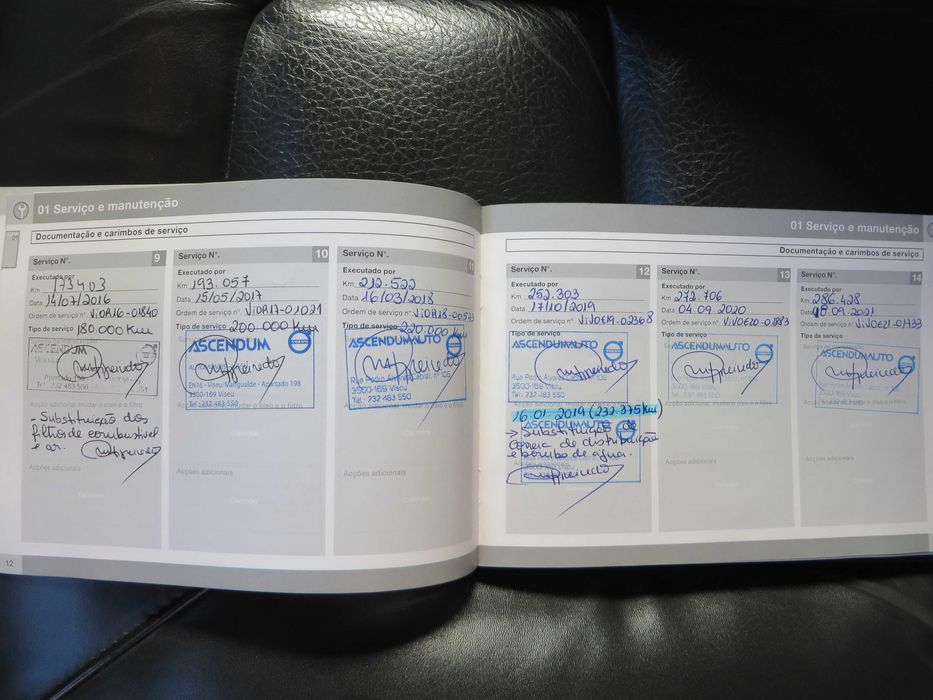 01 Serviço e manutenção
Documentação e carimbos de serviço
Serviço Nº. 9
Executado por
Km 173403
Data 14/07/2016
Ordem de serviço nº. ViORA16-01840
Tipo de serviço 180.000 Km
ASCENDUM
Tel.: 232 483 550
- Substituição dos
filtros de combustivel
e ar.
Acções adicionais
12
Serviço Nº. 10
Executado por
Km 193.057
Data 15/05/2017
Ordem de serviço nº. ViORA17-01021
Tipo de serviço 200 000 Km
ASCENDUM
VOLVO
EN16 - Viseu/Mangualde - Apartado 198
3500-169 Viseu
Tel.: 232 483 550
Acção adicional, mudar o óleo e o filtro
Carimbo
Acções adicionais
Carimbo
Serviço Nº. 11
Executado por
Km 212.522
Data 16/03/2018
Tipo de serviço 220.000 Km
ASCENDUMAUTO
Rua Pedro Álvares Cabral, nº 106
3500-169 Viseu
Tel.: 232 483 550
Acção adicional, mudar o óleo e o filtro
Carimbo
Acções adicionais
Carimbo
01 Serviço e manutenção
Documentação e carimbos de serviço
Serviço Nº. 12
Executado por
Km 252.303
Data 17/10/2019
Ordem de serviço nº. ViJOE19-02368
ASCENDUMAUTO
3500-169 Viseu
Tel.: 232 483 550
16.01.2019 (232.375Km)
→ Substituição de
Correia de distribuição
e bomba de agua.
Serviço Nº. 13
Executado por
Km 272.706
Data 04.09.2020
Ordem de serviço nº. ViJOE20-01883
ASCENDUMAUTO
3500-169 Viseu
Tel.: 232 483 550
Acção adicional, mudar o óleo e o filtro
Acções adicionais
Serviço Nº. 14
Executado por
Km 286.428
Ordem de serviço nº. ViJOE21-01933
ASCENDUMAUTO
3500-169 Viseu
Tel.: 232 483 550
Acção adicional, mudar o óleo e o filtro
Acções adicionais